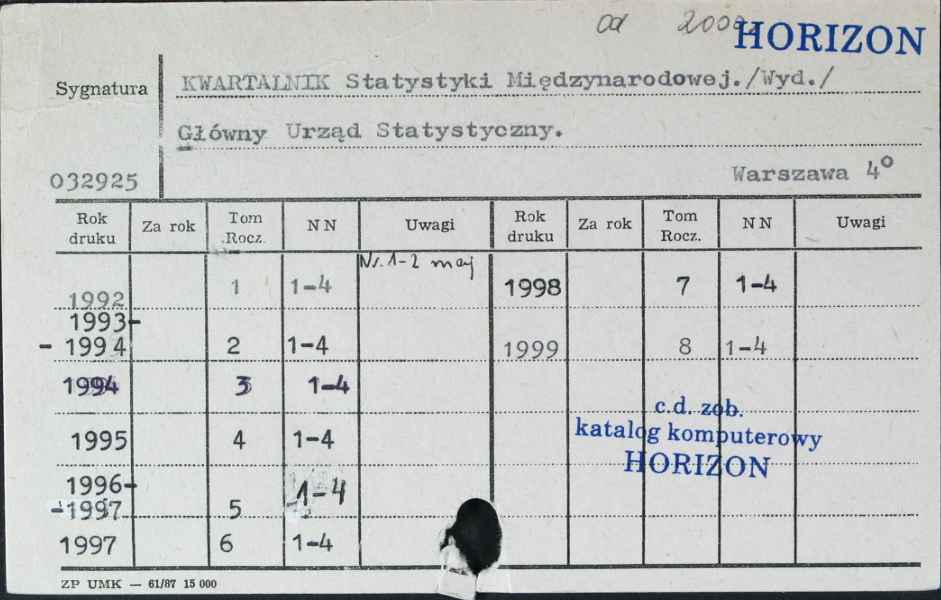 od 2000 HORIZON
Sygnatura KWARTALNIK Statystyki Międzynarodowej./Wyd./
Główny Urząd Statystyczny.
032925 Warszawa 4°
Rok druku Za rok Tom Rocz. NN Uwagi Rok druku Za rok Tom Rocz. NN Uwagi
1992 1 1-4 Nr. 1-2 maj 1998 7 1-4
1993-
- 1994 2 1-4 1999 8 1-4
1994 3 1-4
c.d. zob.
katalog komputerowy
1995 4 1-4
HORIZON
1996-
-1997 5 1-4
1997 6 1-4
ZP UMK — 61/87 15 000